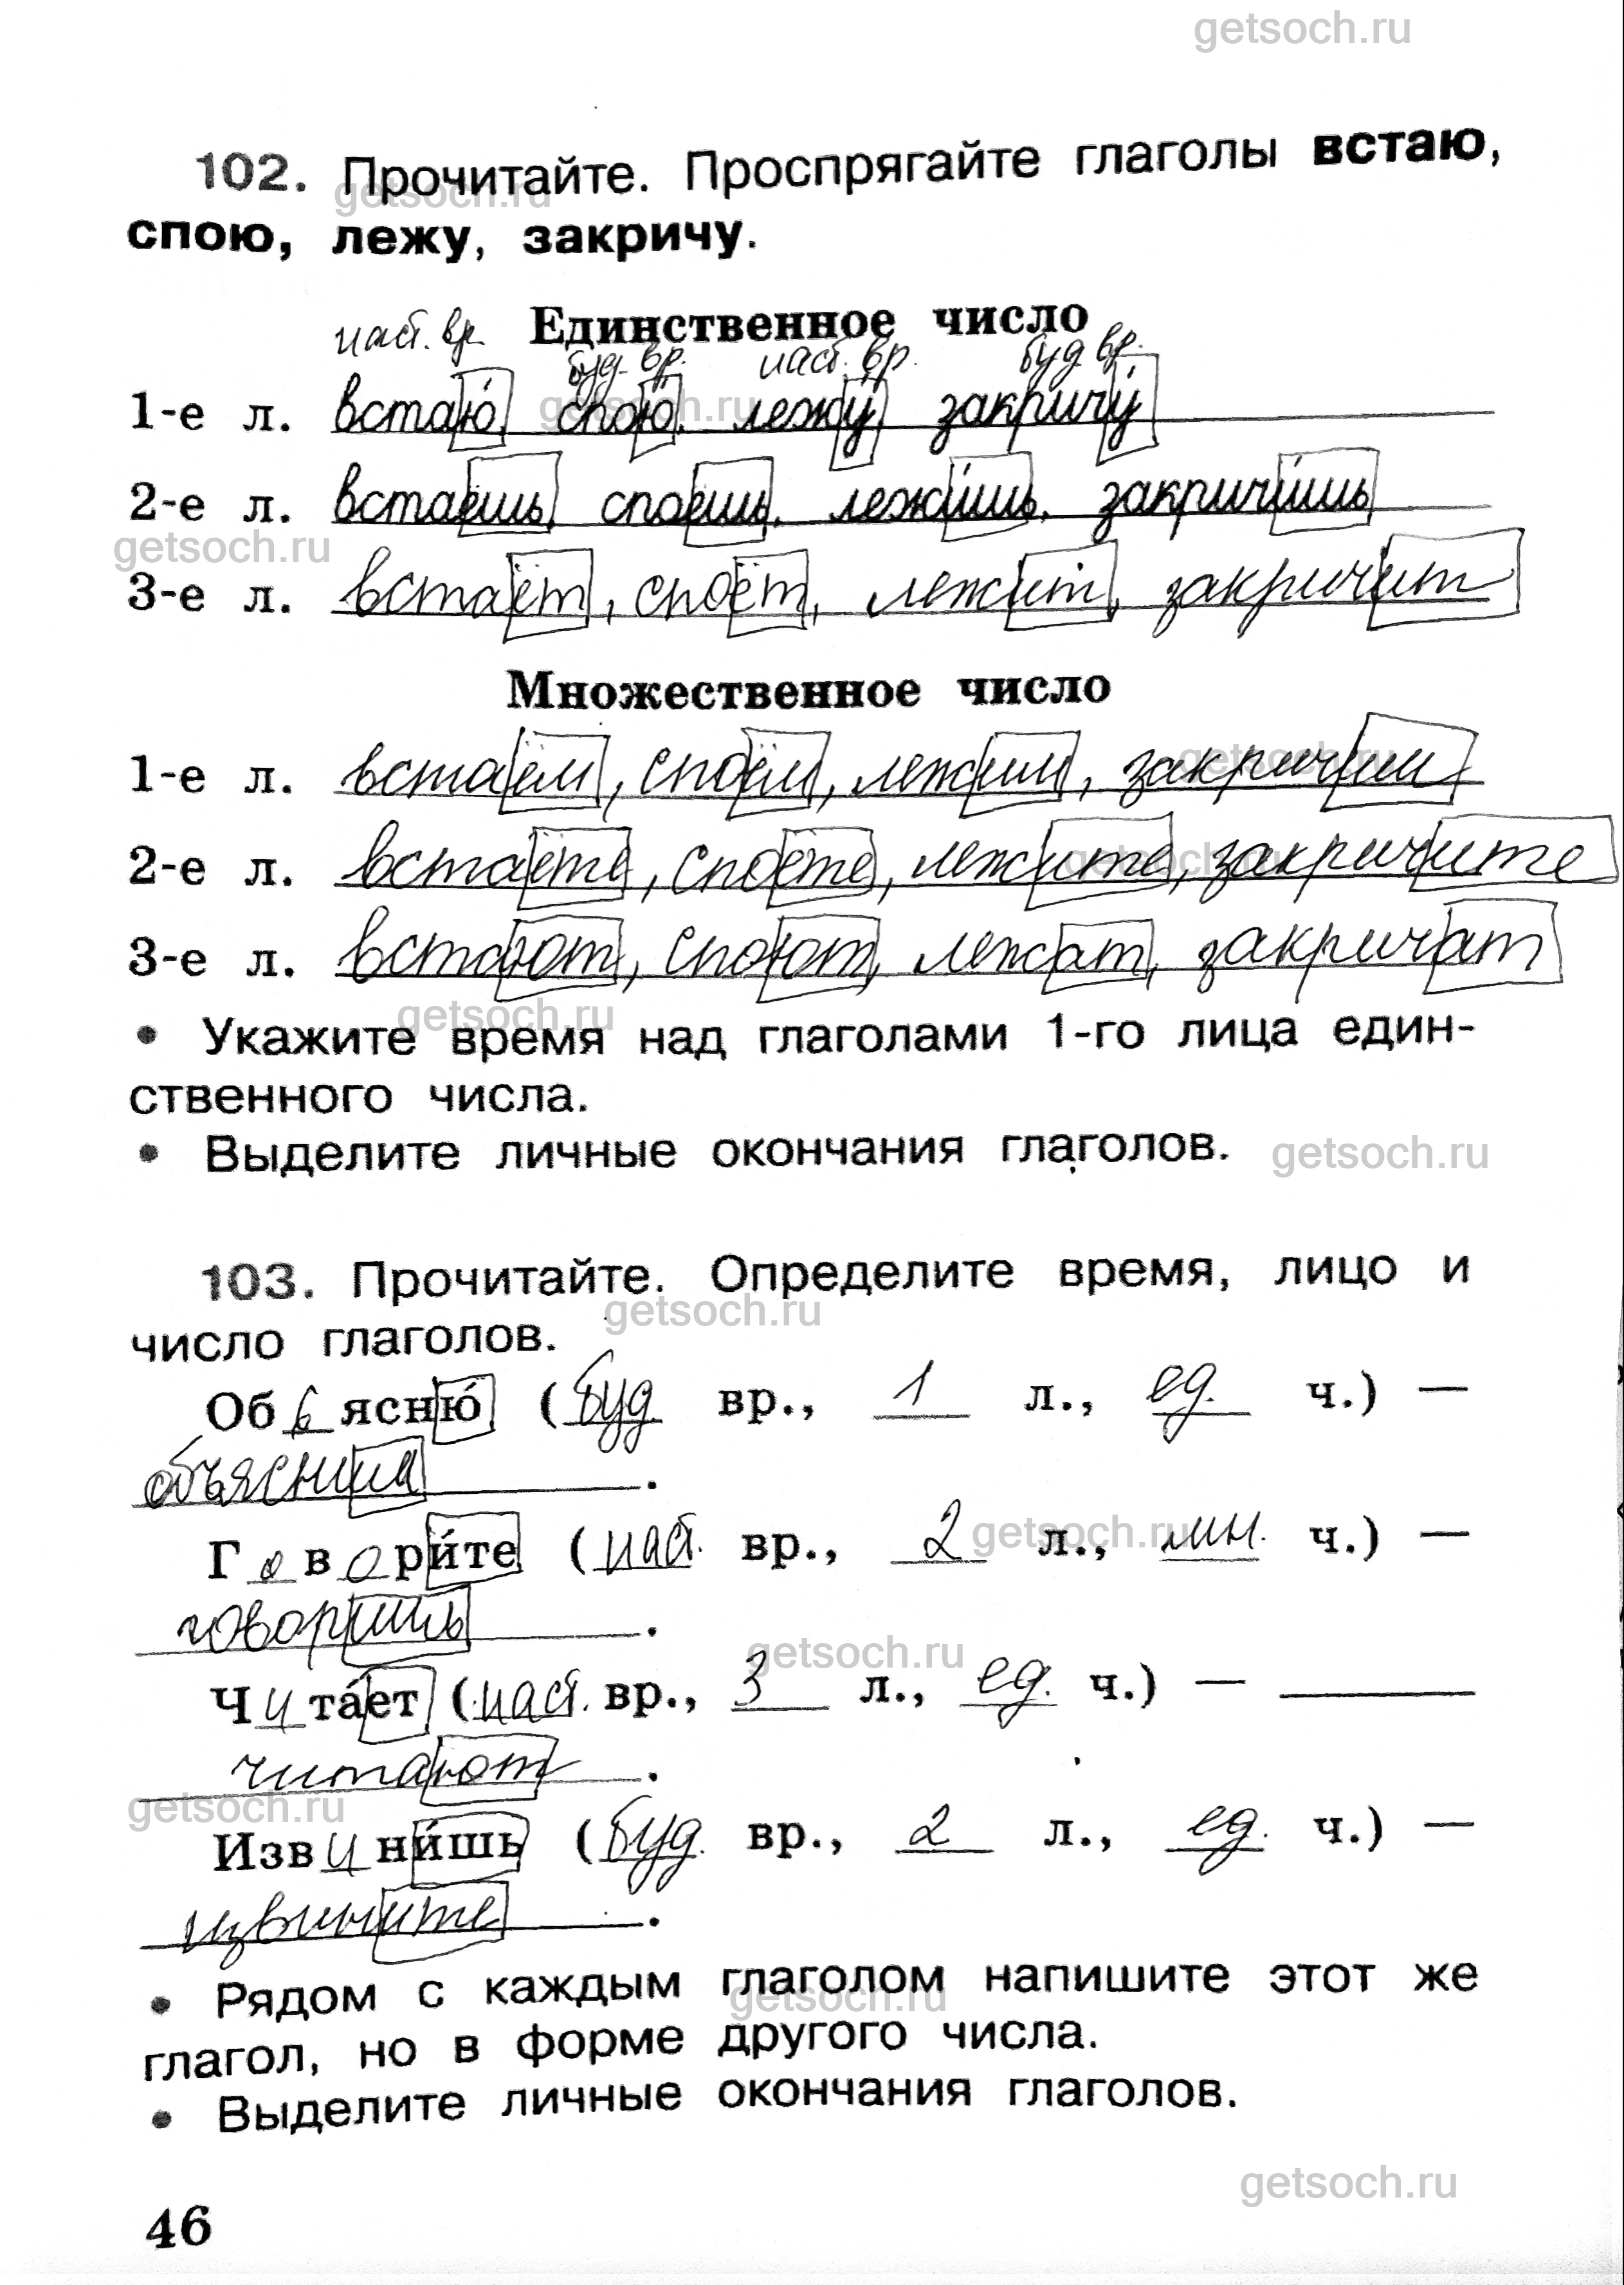 getsoch.ru
102. Прочитайте. Проспрягайте глаголы встаю,
getsoch.ru
спою, лежу, закричу.
Единственное число
наст. вр. буд. вр. наст. вр. буд. вр.
1-е л. встаю, спою, лежу, закричу
getsoch.ru
2-е л. встаёшь, споёшь, лежишь, закричишь
getsoch.ru
3-е л. встаёт, споёт, лежит, закричит
Множественное число
getsoch.ru
1-е л. встаём, споём, лежим, закричим
getsoch.ru
2-е л. встаёте, споёте, лежите, закричите
3-е л. встают, споют, лежат, закричат
getsoch.ru
• Укажите время над глаголами 1-го лица един-
ственного числа.
• Выделите личные окончания глаголов.
getsoch.ru
103. Прочитайте. Определите время, лицо и
getsoch.ru
число глаголов.
Объясню́ (буд вр., 1 л., ед. ч.) —
объясним.
getsoch.ru
Говори́те (наст. вр., 2 л., мн. ч.) —
говоришь.
getsoch.ru
Чита́ет (наст. вр., 3 л., ед. ч.) —
читают.
getsoch.ru
Извини́шь (буд. вр., 2 л., ед. ч.) —
извините.
• Рядом с каждым глаголом напишите этот же
getsoch.ru
глагол, но в форме другого числа.
• Выделите личные окончания глаголов.
getsoch.ru
46